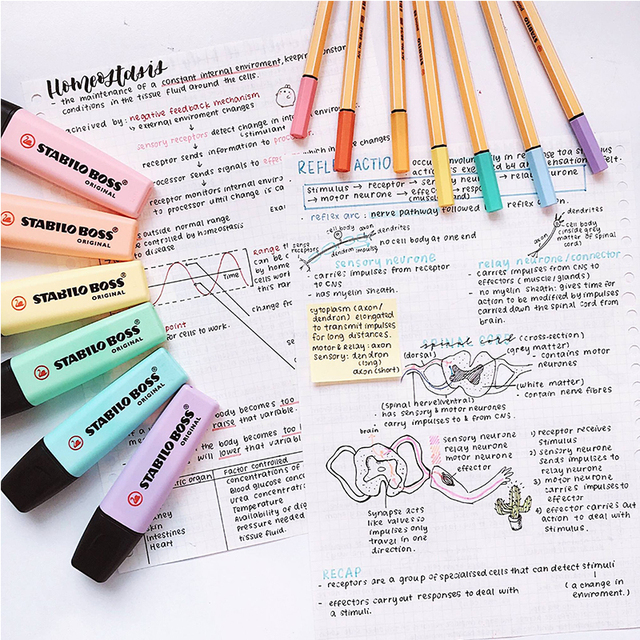 Homeostasis
- the maintenance of a constant internal enviroment, keeping constant
conditions in the tissue fluid around the cells.
acheived by: negative feedback mechanism
→ external enviroment changes
sensory receptors detect change in internal enviro
stimulant
receptor sends information to processor
processor sends signals to effe
receptor monitors internal enviro
to processor until change is co
outside normal range
controlled by homeostasis
exa
Range
can be
by home
cells wo
this ran
Time
change from
point
for cells to work.
body becomes too
raise that variable.
the body becomes too
will lower that variable
organ
Factor controlled
concentrations of
Blood glucose conc
Urea concentration
Temperature
Availability of dig
Pressure needed
tissue fluid.
Skin
Intestines
Heart
STABILO BOSS
ORIGINAL
STABILO BOSS
ORIGINAL
STABILO BOSS
ORIGINAL
STABILO BOSS
ORIGINAL
STABILO BOSS
ORIGINAL
STABILO BOSS
ORIGINAL
REFLEX ACTION
occurs involuntarily in response to a stimulus
stimulus → receptor → sensory neurone → relay neurone
→ motor neurone → effector → response
(muscle/gland)
reflex arc: nerve pathway followed reflex action.
sense
receptors
cell body
axon
dendrites
dendron
impulse
no cell body at one end
dendrites
cell body
(inside grey
matter of spinal
cord)
axon
sensory neurone
- carries impulses from receptor
to CNS
- has myelin sheath.
relay neurone/connector
- carries impulses from CNS to
effectors (muscle/glands)
no myelin sheath: gives time for
action to be modified by impulses
carried down the spinal cord from
brain.
cytoplasm (axon/
dendron) elongated
to transmit impulses
for long distances.
motor & relay: axon
sensory: dendron
(long)
axon (short)
spinal cord (cross-section)
(dorsal)
(grey matter)
- contains motor
neurones
(white matter)
- contain nerve fibres
(spinal nerve)
(ventral)
has sensory & motor neurones
carry impulses to & from CNS.
brain
sensory neurone
relay neurone
motor neurone
effector
synapse acts
like valves so
impulses only
travel in one
direction.
1) receptor receives
stimulus
2) sensory neurone
sends impulses to
relay neurone
3) motor neurone
carries impulses to
effector
4) effector carries out
action to deal with
stimulus.
RECAP
- receptors are a group of specialised cells that can detect stimuli
(a change in
enviroment.)
- effectors carry out responses to deal with
a stimuli.